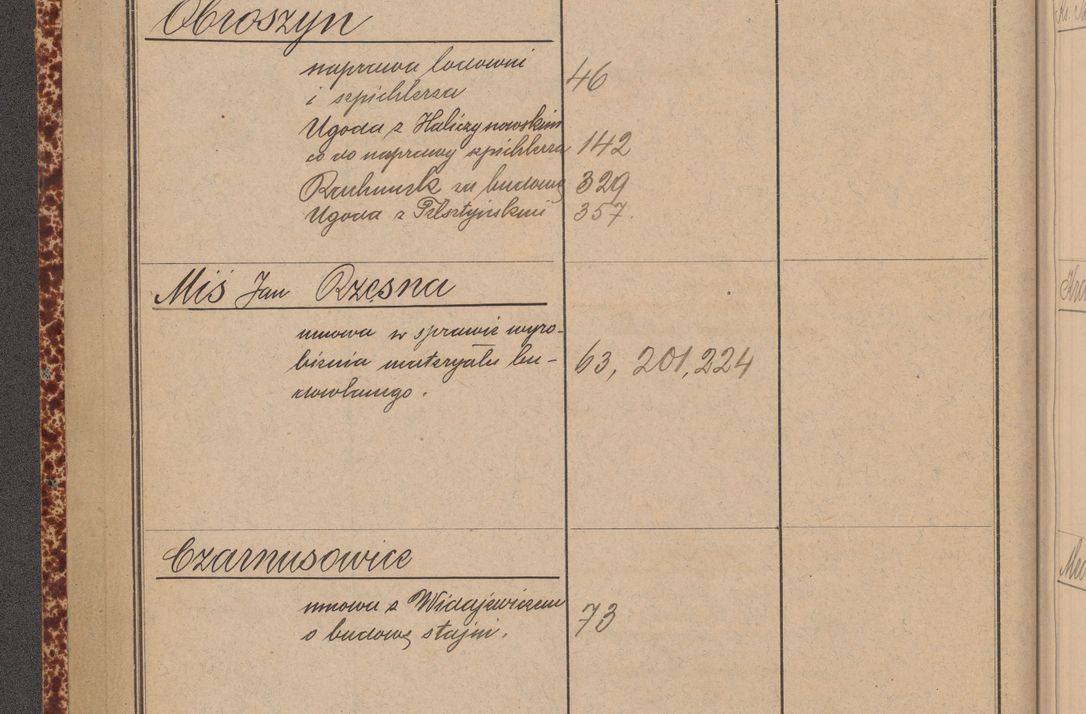 Obroszyn
naprawa lodowni 46
i szpichlerza
Ugoda z Haliczynowskim
co do naprawy szpichlerza 142
Rachunek za budowę 329
Ugoda z 357.
Miś Jan Rzęsna
umowa w sprawie wyro-
bienia materyału bu- 63, 201, 224
dowlanego.
Czarnusowice
umowa z Widajewiczem
o budowę stajni. 73